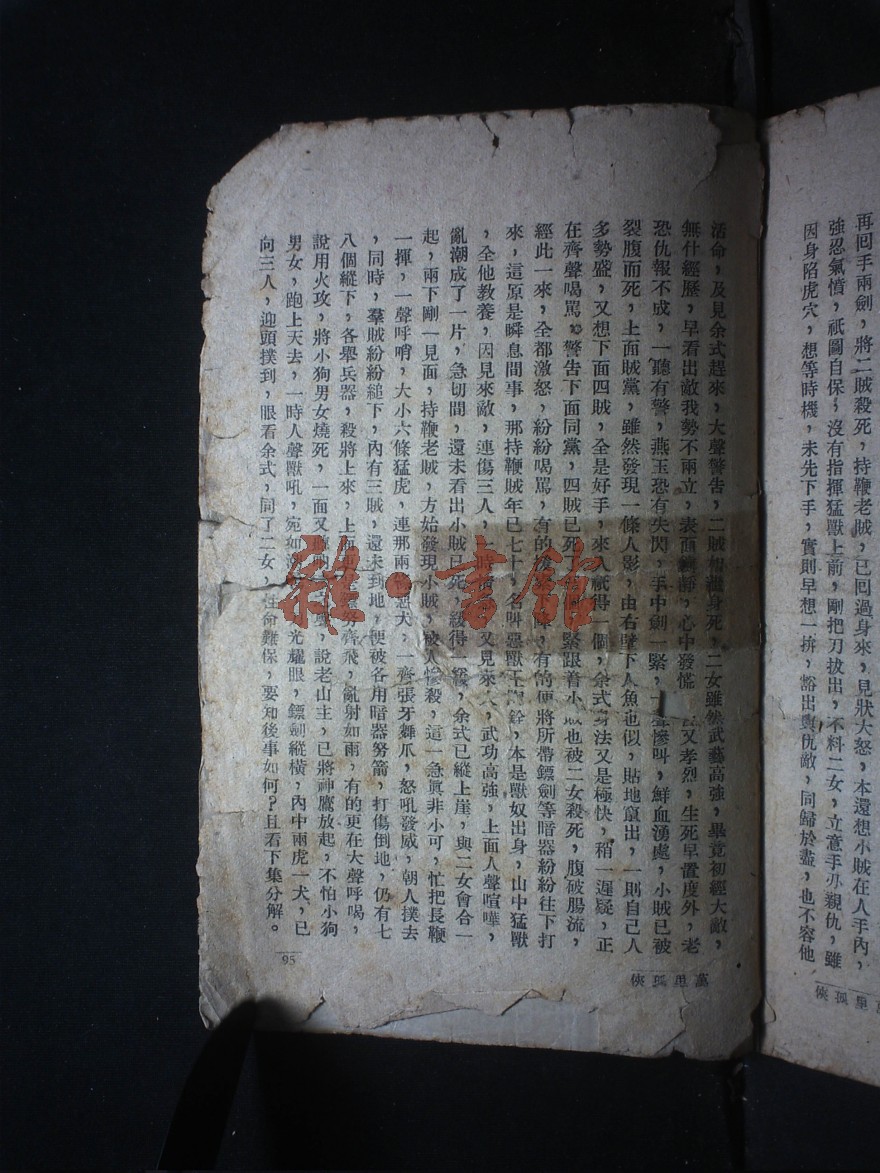 再回手兩劍，將二賊殺死，持鞭老賊，已回過身來，見狀大怒，本還想小賊在人手內，
強忍氣憤，祇圖自保，沒有指揮猛獸上前，剛把刀拔出，不料二女，立意手刃親仇，雖
因身陷虎穴，想等時機，未先下手，實則早想一拚，豁出與仇敵，同歸於盡，也不容他
萬里孤俠
活命，及見余式趕來，大聲警告，二賊相繼身死，二女雖然武藝高強，畢竟初經大敵，
無什經歷，早看出敵我勢不兩立，表面鎮靜，心中發慌，又孝烈，生死早置度外，老
恐仇報不成，一聽有警，燕玉恐有失閃，手中劍一緊，聲慘叫，鮮血湧處，小賊已被
裂腹而死，上面賊黨，雖然發現一條人影，由右壁下人魚也似，貼地竄出，一則自己人
多勢盛，又想下面四賊，全是好手，來人祇得一個，余式身法又是極快，稍一遲疑，正
在齊聲喝罵，警告下面同黨，四賊已死，緊跟着小賊也被二女殺死，腹破腸流，
經此一來，全都激怒，紛紛喝罵，有的，有的便將所帶鏢劍等暗器紛紛往下打
來，這原是瞬息間事，那持鞭賊年已七十，名叫惡獸王銓，本是獸奴出身，山中猛獸
，全他教養，因見來敵，連傷三人，一時，又見來人，武功高強，上面人聲喧嘩，
亂潮成了一片，急切間，還未看出小賊已死，緩得一緩，余式已縱上崖，與二女會合一
起，兩下剛一見面，持鞭老賊，方始發現小賊，被人慘殺，這一急眞非小可，忙把長鞭
一揮，一聲呼哨，大小六條猛虎，連那兩條惡犬，一齊張牙舞爪，怒吼發威，朝人撲去
，同時，羣賊紛紛縋下，內有三賊，還未到地，便被各用暗器弩箭，打傷倒地，仍有七
八個縱下，各舉兵器，殺將上來，上面更齊飛，亂射如雨，有的更在大聲呼喝，
說用火攻，將小狗男女燒死，一面又，說老山主，已將神鷹放起，不怕小狗
男女，跑上天去，一時人聲獸吼，宛如光耀眼，鏢劍縱橫，內中兩虎一犬，已
向三人，迎頭撲到，眼看余式，同了二女，性命難保，要知後事如何？且看下集分解。
萬里孤俠
95
雜·書館